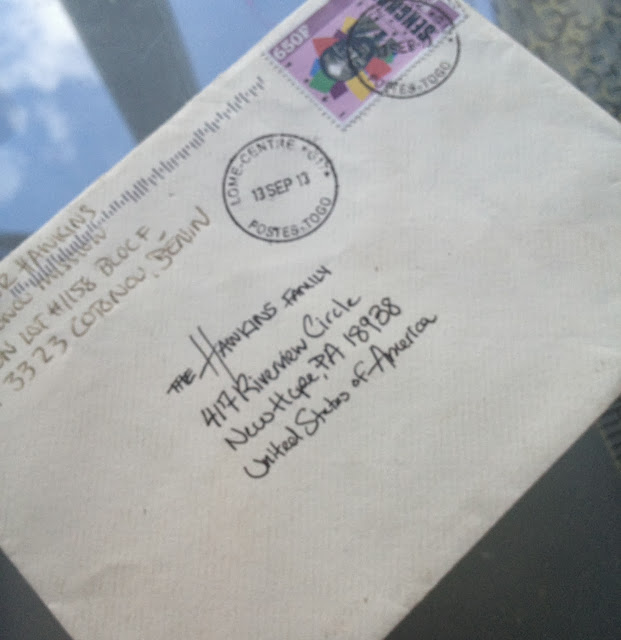 650F
POSTES-TOGO
LOME-CENTRE
13 SEP 13
POSTES-TOGO
HAWKINS
MISSION
LOT #1158 BLOC F
33 23 COTONOU, BENIN
THE HAWKINS FAMILY
417 Riverview Circle
New Hope, PA 18938
United States of America